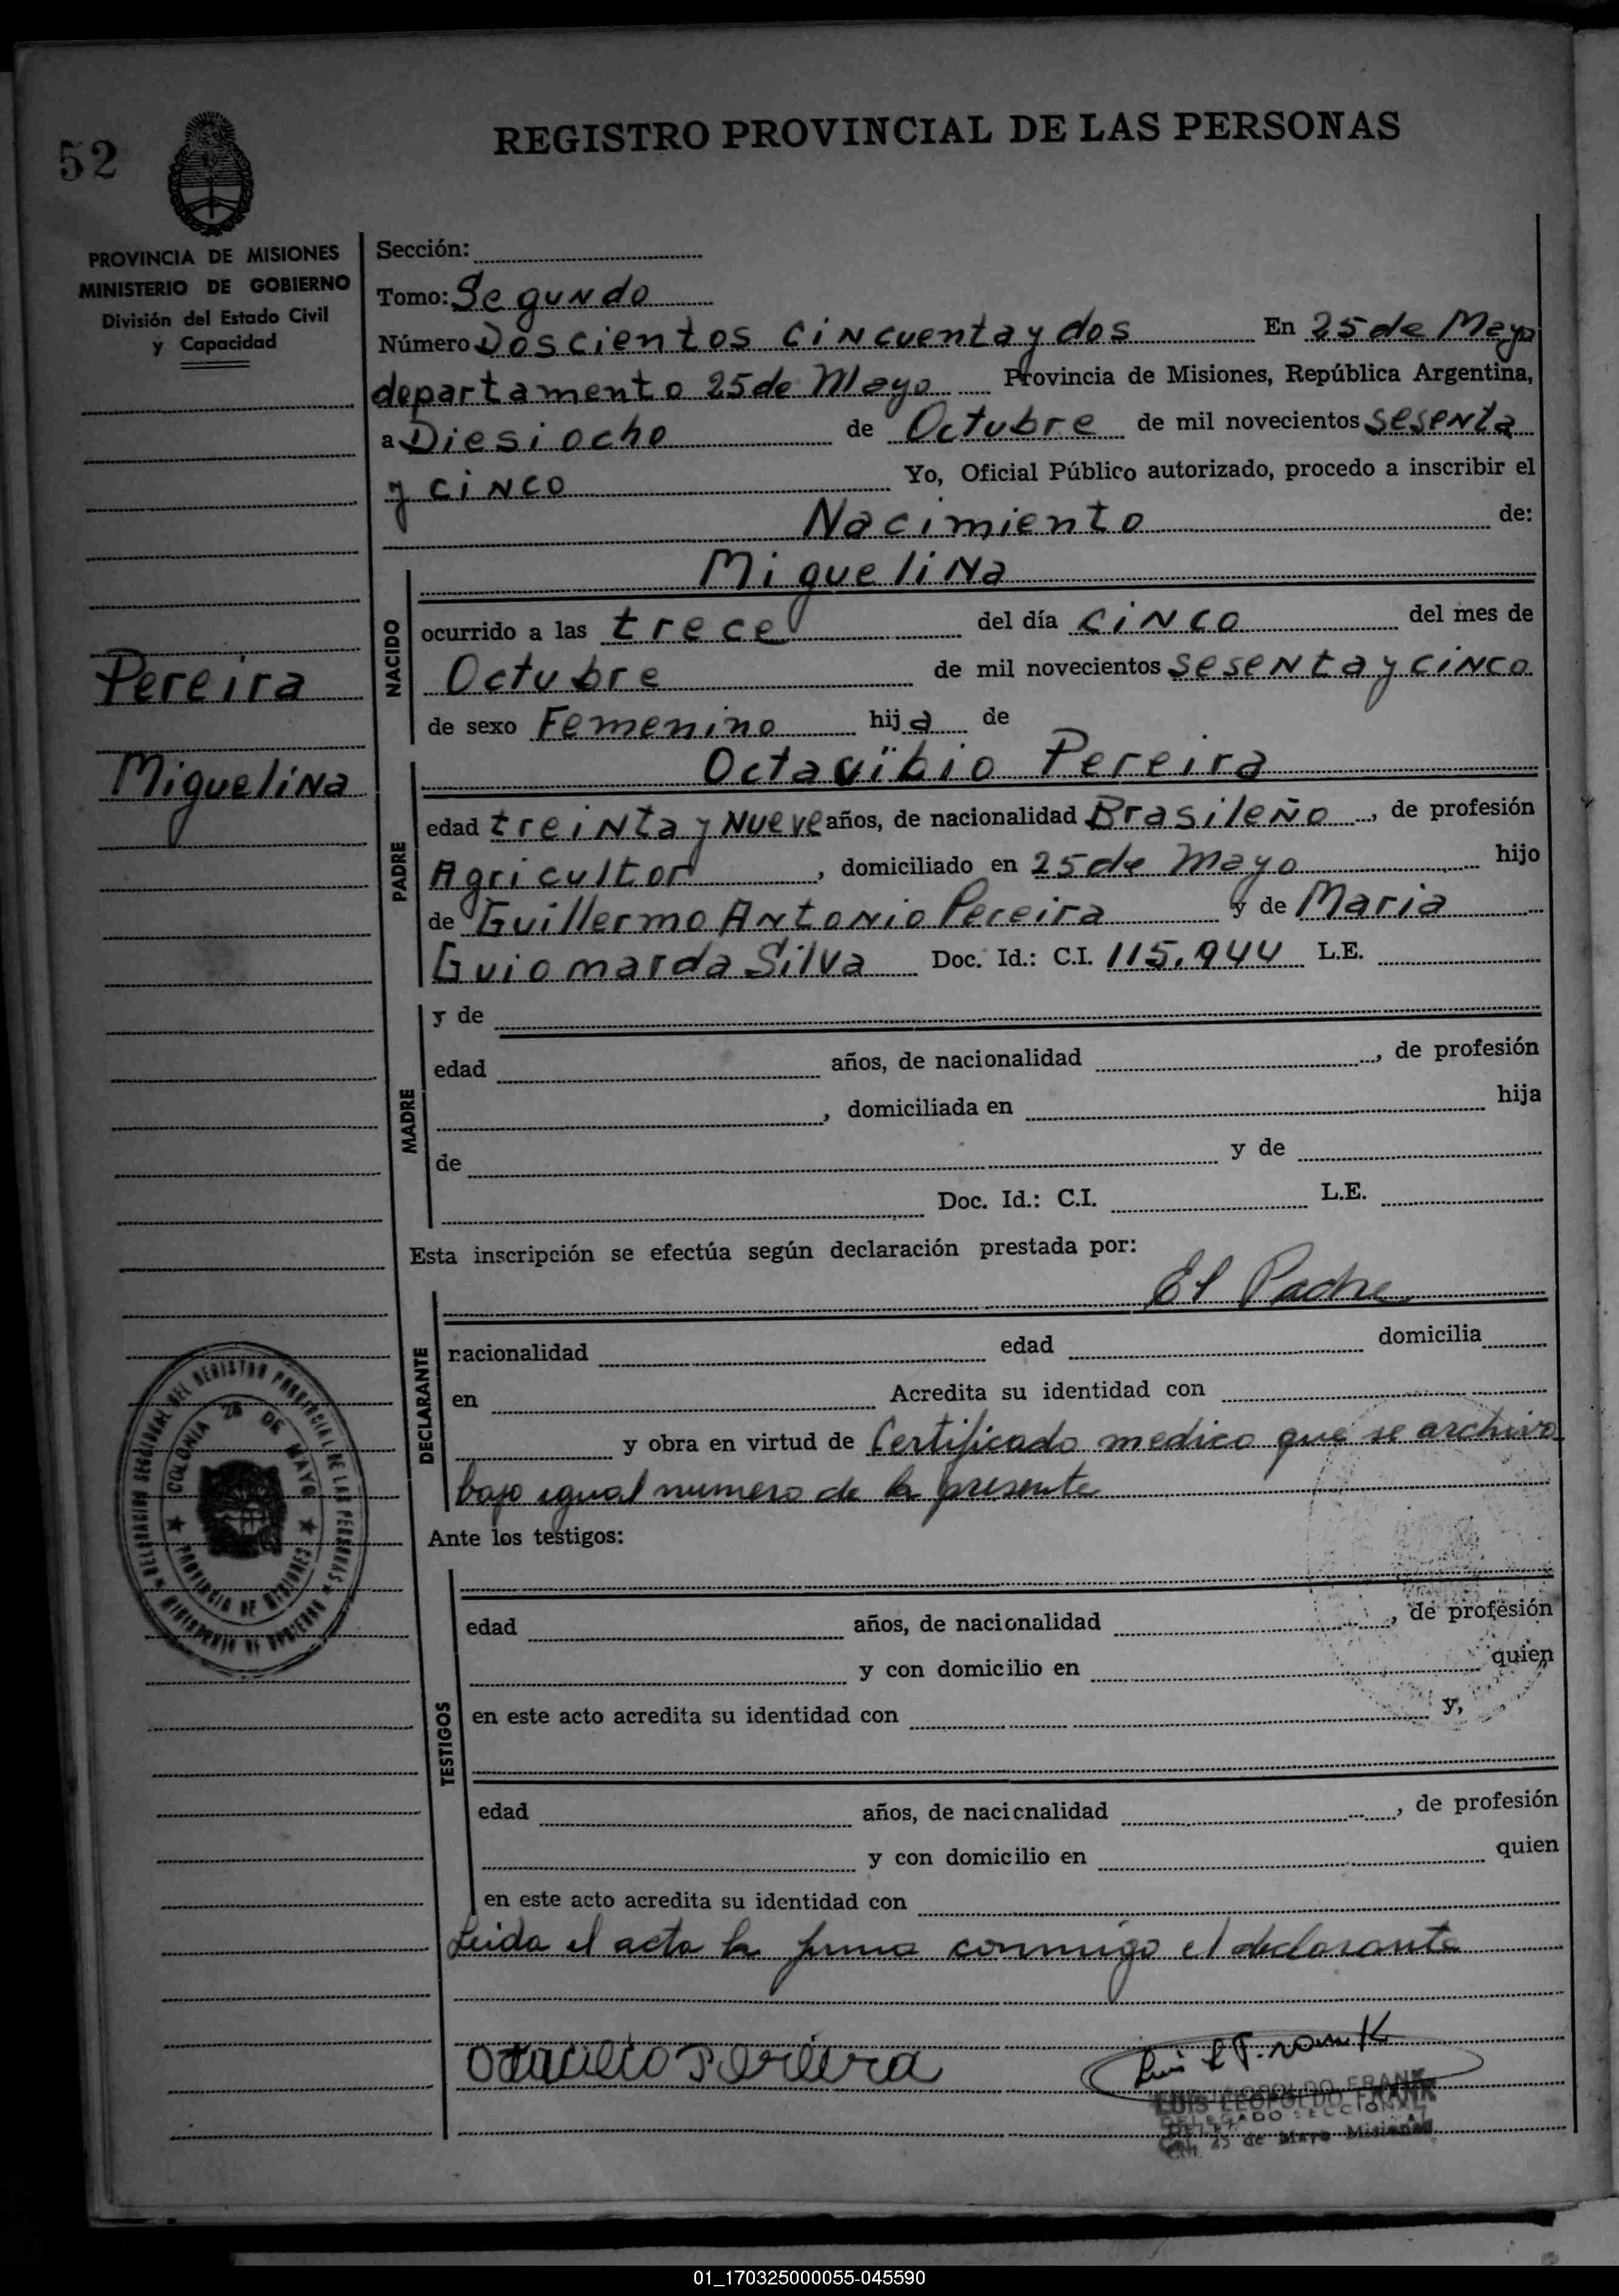 REGISTRO PROVINCIAL DE LAS PERSONAS
52
PROVINCIA DE MISIONES
MINISTERIO DE GOBIERNO
División del Estado Civil
y Capacidad
Pereira
Miguelina
Sección:
Tomo: Segundo
Número Doscientos cincuenta y dos En 25 de Mayo
departamento 25 de Mayo Provincia de Misiones, República Argentina,
a Diesiocho de Octubre de mil novecientos sesenta
y cinco Yo, Oficial Público autorizado, procedo a inscribir el
Nacimiento de:
NACIDO
Miguelina
ocurrido a las trece del día cinco del mes de
Octubre de mil novecientos sesenta y cinco
de sexo Femenino hija de
PADRE
Octavibio Pereira
edad treinta y nueve años, de nacionalidad Brasileño, de profesión
Agricultor, domiciliado en 25 de Mayo hijo
de Guillermo Antonio Pereira y de Maria
Guiomarda Silva Doc. Id.: C.I. 115.944 L.E.
MADRE
y de
edad años, de nacionalidad , de profesión
, domiciliada en hija
de y de
Doc. Id.: C.I. L.E.
Esta inscripción se efectúa según declaración prestada por:
El Padre
DECLARANTE
nacionalidad edad domicilia
en Acredita su identidad con
y obra en virtud de Certificado medico que se archiva
bajo igual numero de la presente
Ante los testigos:
TESTIGOS
edad años, de nacionalidad , de profesión
y con domicilio en quien
en este acto acredita su identidad con y,
edad años, de nacionalidad , de profesión
y con domicilio en quien
en este acto acredita su identidad con
Leida el acta la firma conmigo el declarante
Pereira
Luis L Frank
LUIS LEOPOLDO FRANK
DELEGADO SECCIONAL
Col. 25 de Mayo Misiones
DELEGACION SECCIONAL DEL REGISTRO PROVINCIAL DE LAS PERSONAS
MINISTERIO DE GOBIERNO
COLONIA 25 DE MAYO
PROVINCIA DE MISIONES
01_170325000055-045590